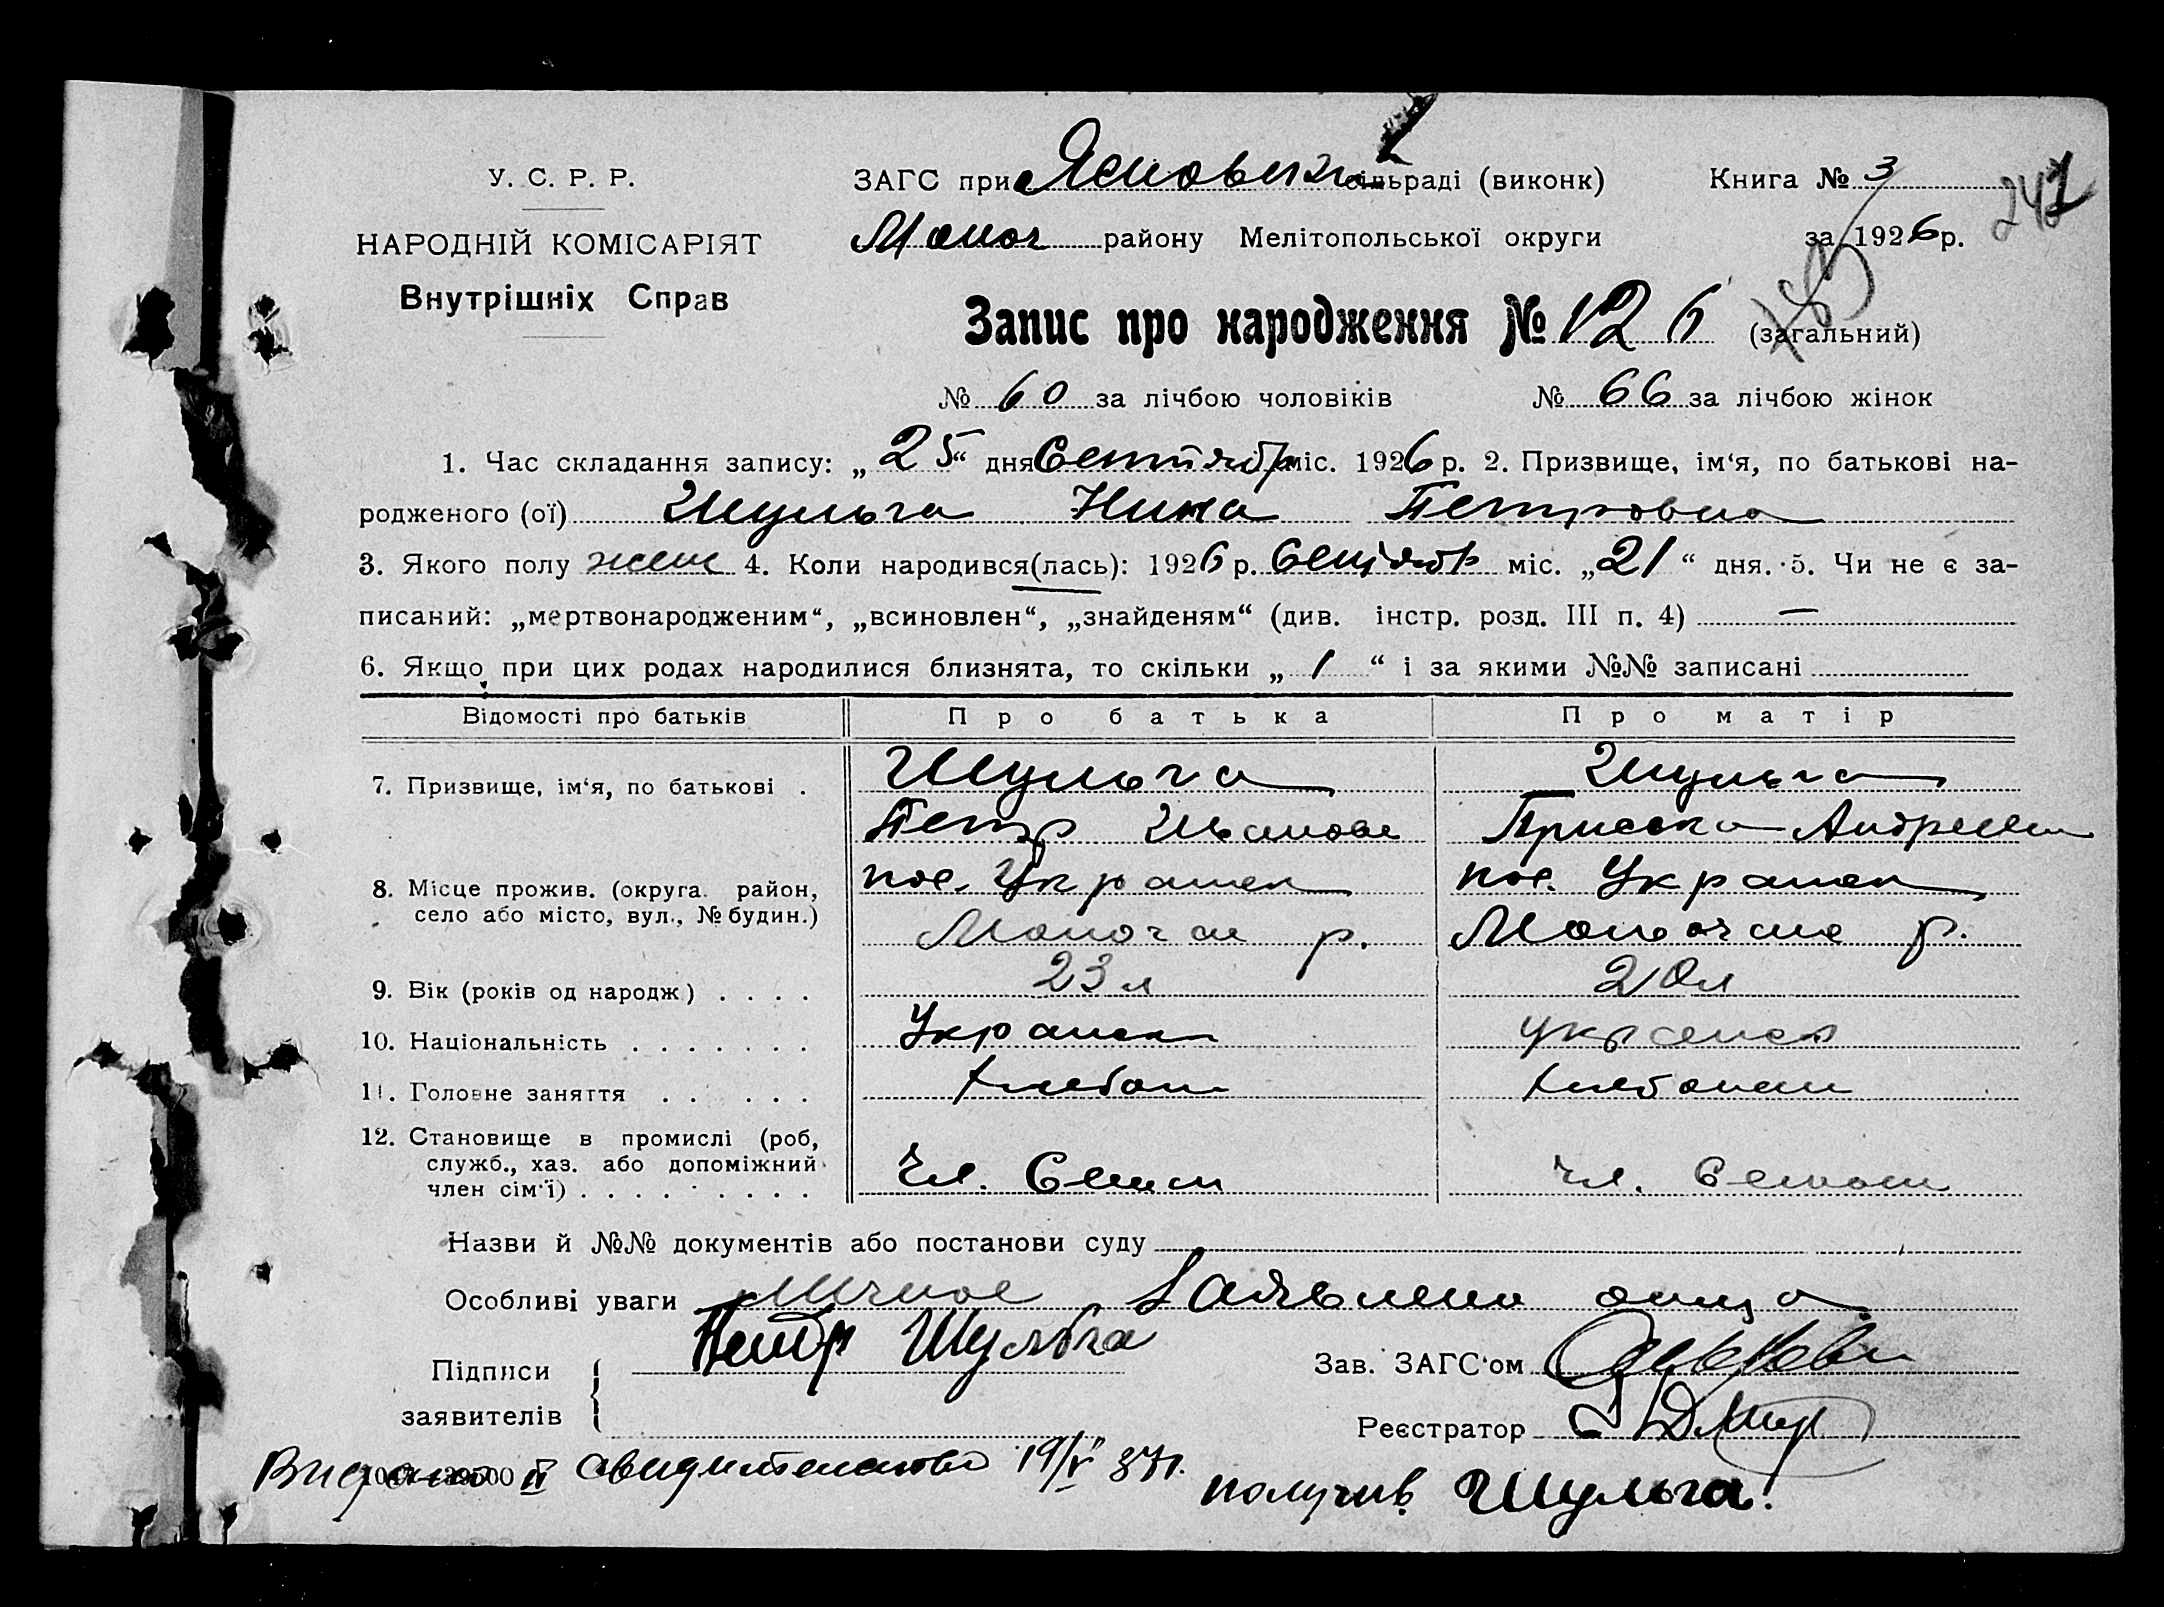 У. С. Р. Р.
НАРОДНІЙ КОМІСАРІЯТ
Внутрішніх Справ
ЗАГС при сільраді (виконк) Книга № 3
району Мелітопольської округи за 1926 р. 247
Запис про народження № 126 (загальний)
№ 60 за лічбою чоловіків № 66 за лічбою жінок
1. Час складання запису: „25“ дня Сентября міс. 1926 р. 2. Призвище, ім‘я, по батькові на-
родженого (ої) Шульга Нина Петровна
3. Якого полу жен 4. Коли народився(лась): 1926 р. Сентябр міс. „21“ дня. 5. Чи не є за-
писаний: „мертвонародженим“, „всиновлен“, „знайденям“ (див. інстр. розд. III п. 4) —
6. Якщо при цих родах народилися близнята, то скільки „1“ і за якими №№ записані
Відомості про батьків Про батька Про матір
7. Призвище, ім‘я, по батькові . Шульга Шульга
Петр Иванов Приска Андреев
8. Місце прожив. (округа. район, пос. Украинск пос. Украинск
село або місто, вул., № будин.) р. р.
9. Вік (років од народж) . . . . 23 л 20 л
10. Національність . . . . . . . Украинск украинск
11. Головне заняття . . . . . Хлебоп Хлебопаш
12. Становище в промислі (роб,
служб., хаз. або допоміжний чл. Семьи чл. Семьи
член сім‘ї) . . . . . . . . .
Назви й №№ документів або постанови суду
Особливі уваги Личное Заявлени отца
Підписи Петр Шульга Зав. ЗАГС‘ом
заявителів Реєстратор
Видано II свидительство 19/V 37 г.
получив Шульга